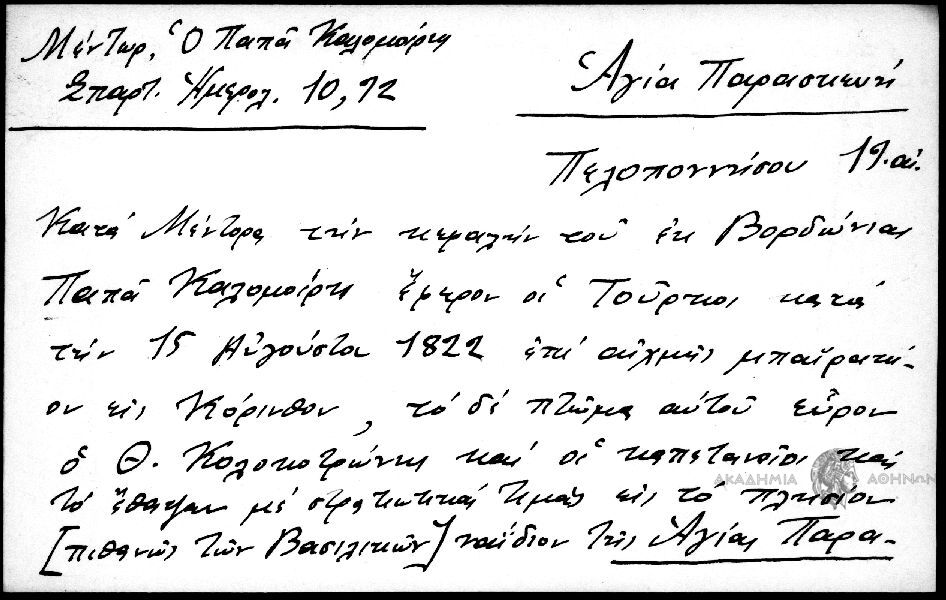 Μέντωρ, Ὁ Παπᾶ Καλομοίρης
Σπαρτ. Ἡμερολ. 10, 72
Ἁγία Παρασκευή
Πελοποννήσου 19. αἰ.
Κατά Μέντορα τήν κεφαλήν τοῦ ἐκ Βορδώνιας
Παπᾶ Καλομοίρη ἔφερον οἱ Τοῦρκοι κατά
τήν 15 Αὐγούστου 1822 ἐπί αἰχμῆς μπαϊρακί-
ου εἰς Κόρινθον, τό δέ πτῶμα αὐτοῦ εὗρον
ὁ Θ. Κολοκοτρώνης καί οἱ καπεταναῖοι καί
τό ἔθαψαν μέ στρατιωτικάς τιμάς εἰς τό πλησίον
[πιθανῶς τῶν Βασιλικῶν] ναΐδιον τῆς Ἁγίας Παρα-
ΑΚΑΔΗΜΙΑ ΑΘΗΝΩΝ